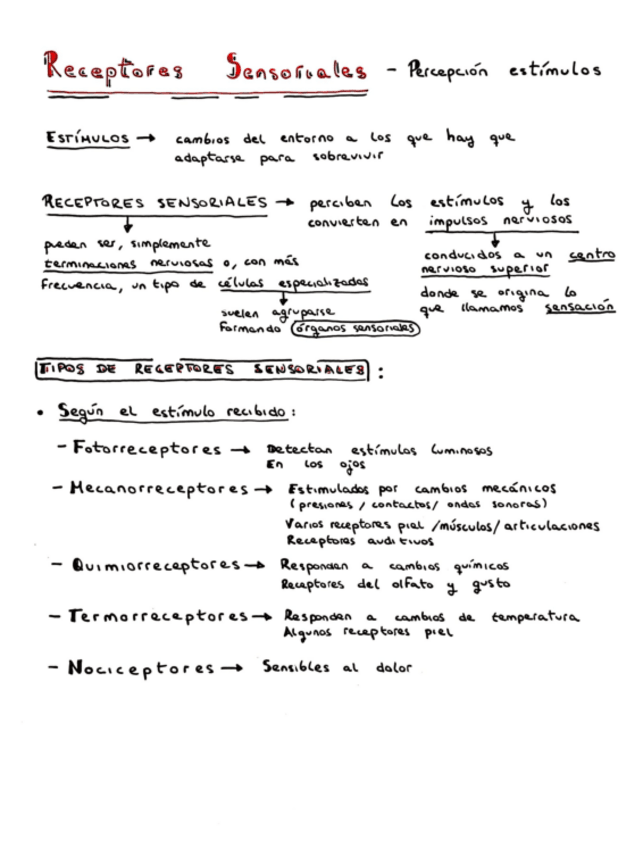 Receptores Sensoriales - Percepción estímulos
ESTÍMULOS → cambios del entorno a los que hay que
adaptarse para sobrevivir
RECEPTORES SENSORIALES → perciben los estímulos y los
convierten en impulsos nerviosos
pueden ser, simplemente
terminaciones nerviosas o, con más
frecuencia, un tipo de células especializadas
suelen agruparse
formando órganos sensoriales
conducidos a un centro
nervioso superior
donde se origina lo
que llamamos sensación
TIPOS DE RECEPTORES SENSORIALES :
• Según el estímulo recibido:
- Fotorreceptores → Detectan estímulos luminosos
En los ojos
- Mecanorreceptores → Estimulados por cambios mecánicos
(presiones / contactos / ondas sonoras)
Varios receptores piel / músculos / articulaciones
Receptores auditivos
- Quimiorreceptores → Responden a cambios químicos
Receptores del olfato y gusto
- Termorreceptores → Responden a cambios de temperatura
Algunos receptores piel
- Nociceptores → Sensibles al dolor